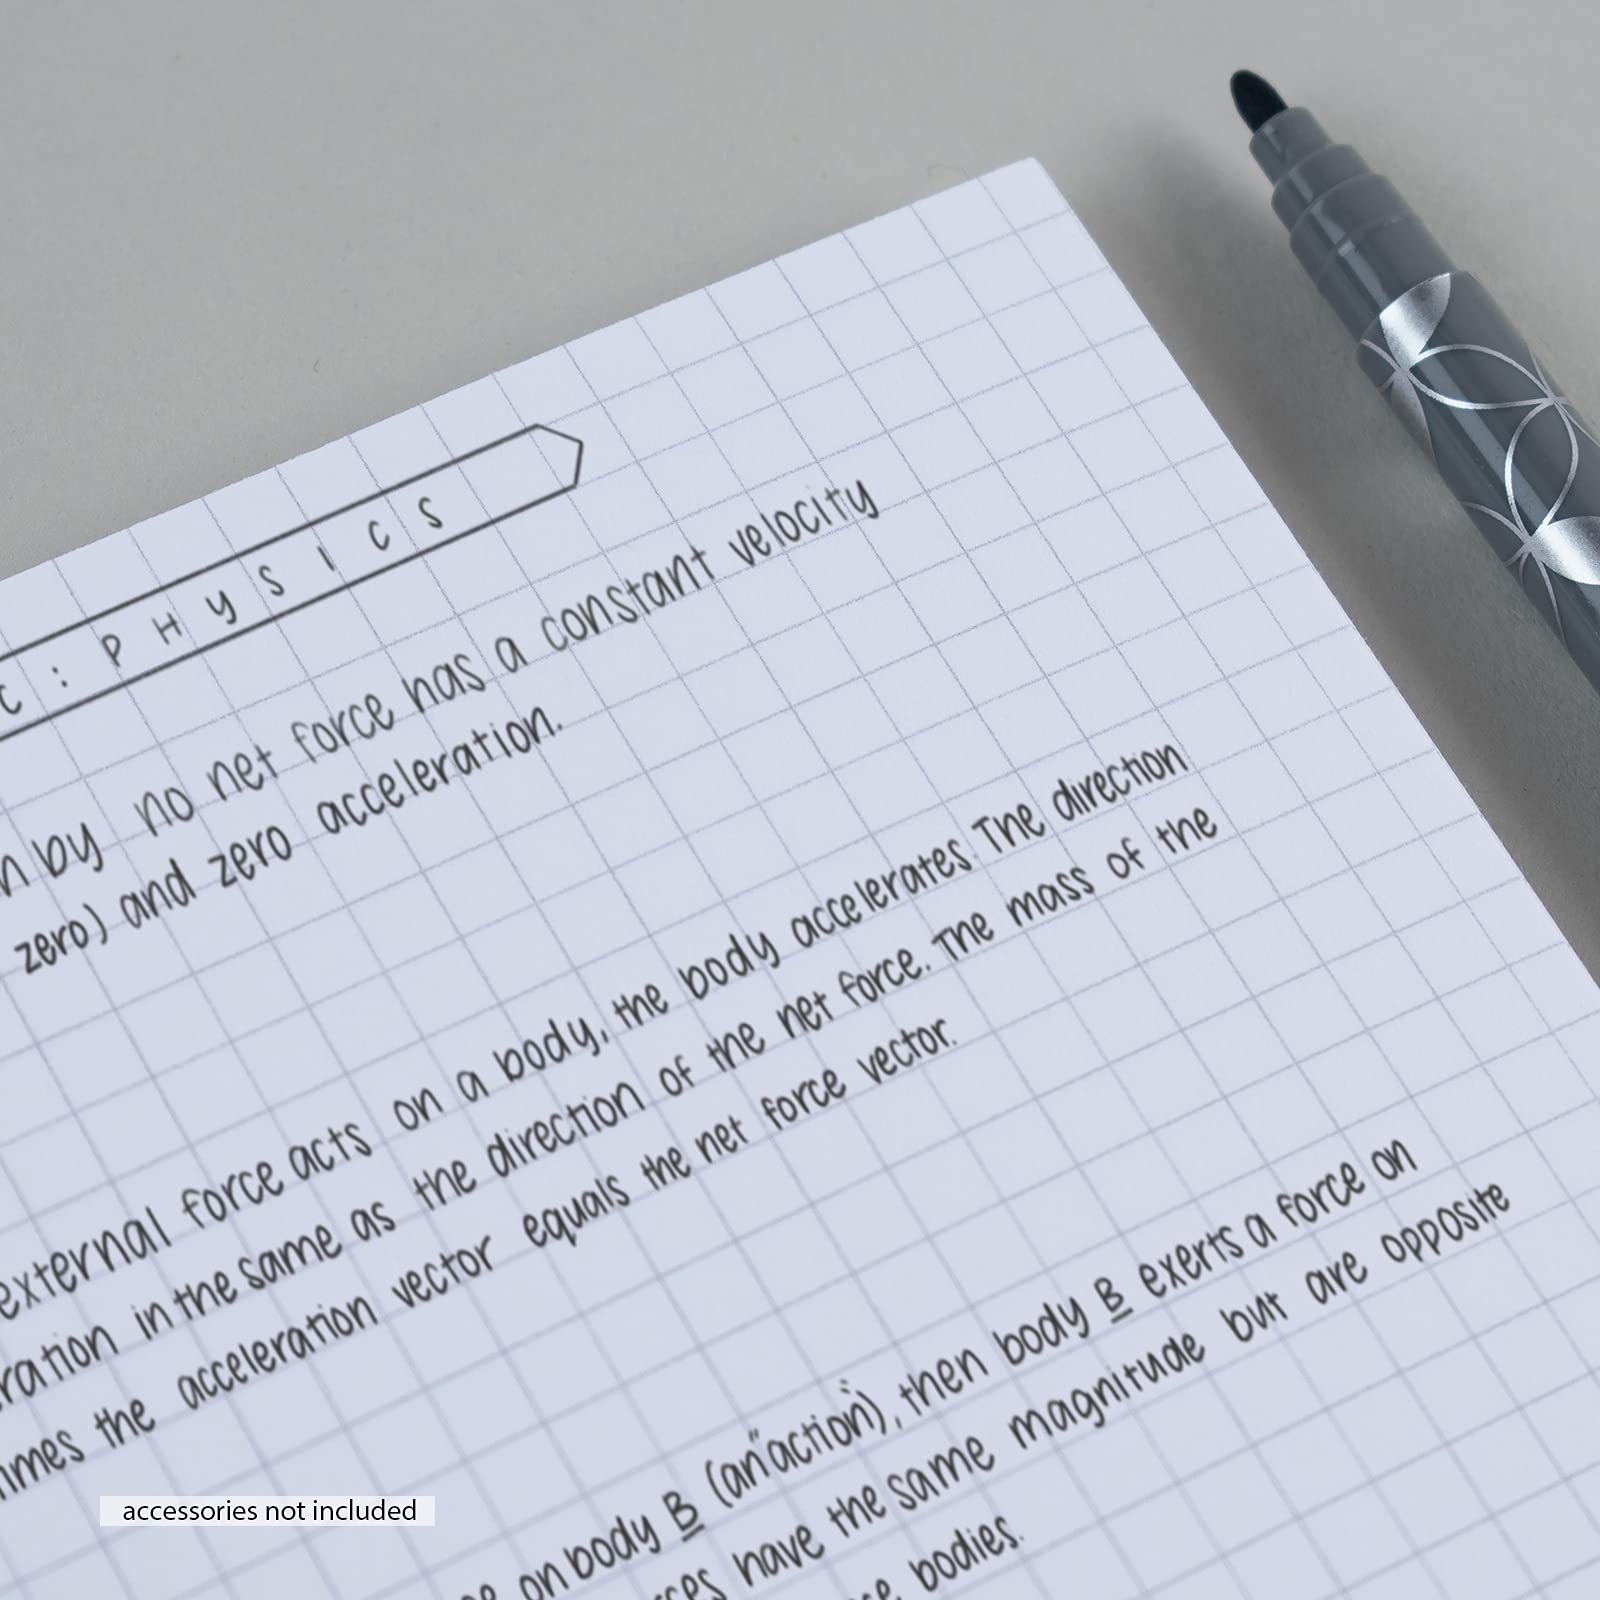 C : PHYSICS
by no net force has a constant velocity
zero) and zero acceleration.
external force acts on a body, the body accelerates. The direction
in the same as the direction of the net force. The mass of the
the acceleration vector equals the net force vector.
on body B (an "action"), then body B exerts a force on
have the same magnitude but are opposite
bodies.
accessories not included